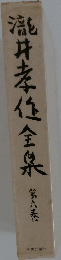 瀧井孝作全集
第六巻